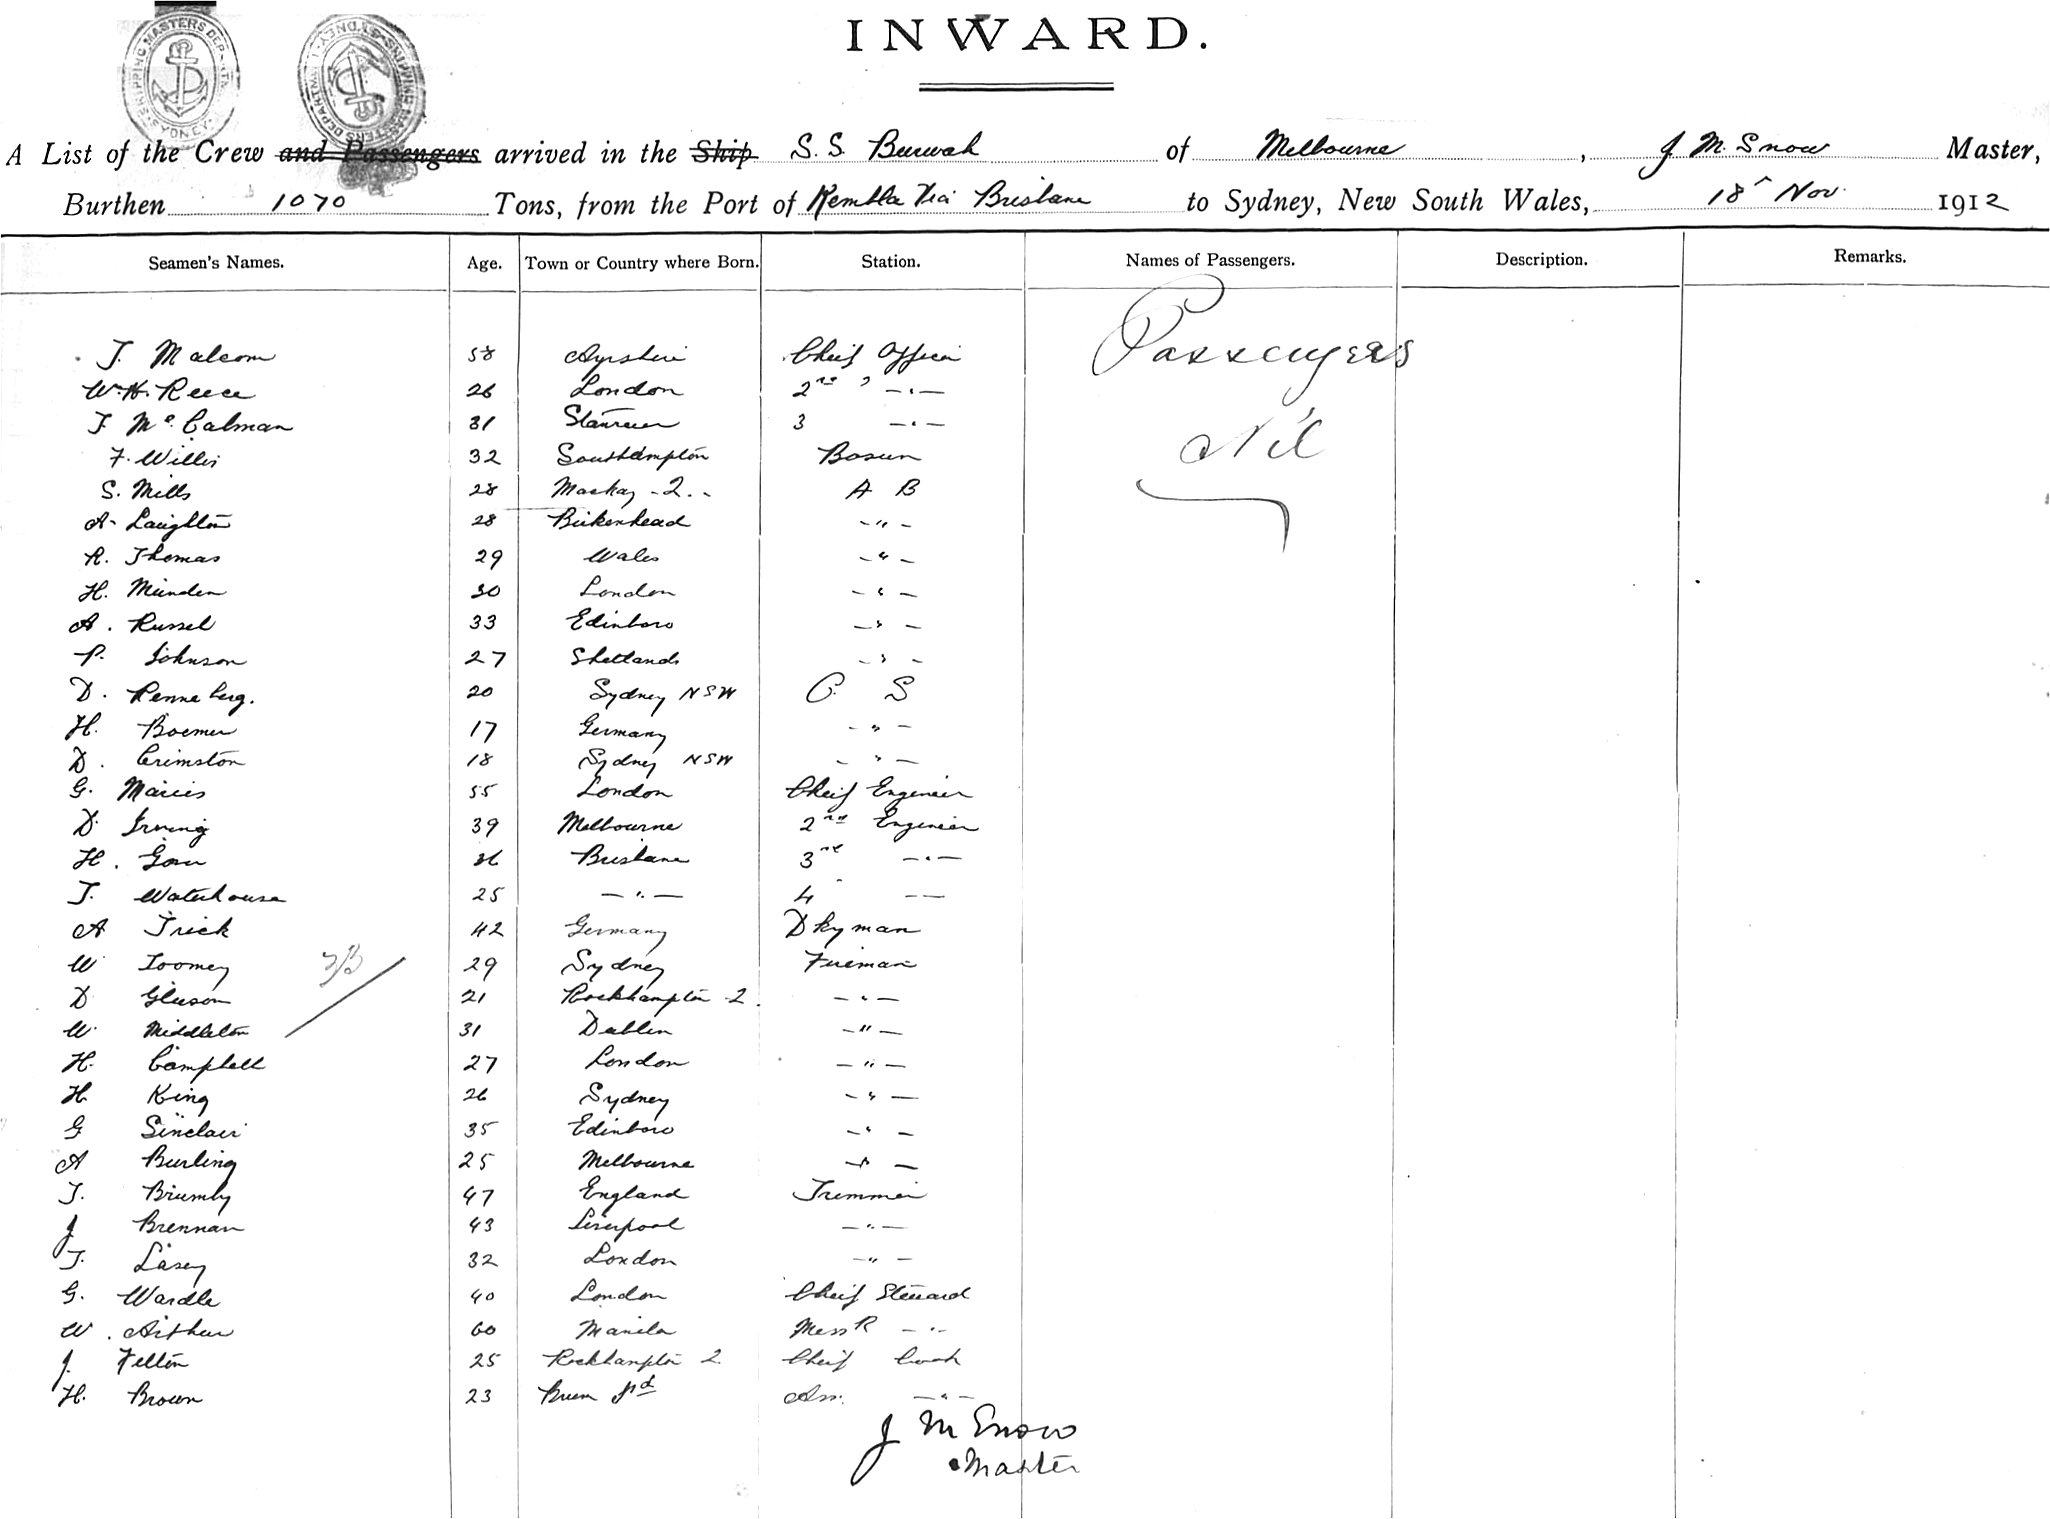 SHIPPING MASTERS DEP SYDNEY
SHIPPING MASTERS DEPARTMENT SYDNEY
INWARD.
A List of the Crew and Passengers arrived in the Ship S. S. Burwah of Melbourne, J M. Snow Master,
Burthen 1070 Tons, from the Port of Kembla Via Brisbane to Sydney, New South Wales, 18 Nov. 1912
Seamen's Names. Age. Town or Country where Born. Station. Names of Passengers. Description. Remarks.
J. Malcom 58 Ayrshire Cheif Officer Passengers
W. H. Reece 26 London 2nd " - " -
J. Mc. Calman 31 3 - " - Nil
F. Willis 32 Southampton Bosun
S. Mills 28 Mackay - Q. A B
A. Laughton 28 Birkenhead - " -
R. Thomas 29 Wales - " -
H. Munden 30 London - " -
A. Russel 33 Edinboro - " -
P. Johnson 27 Shetlands - " -
D. Renneberg. 20 Sydney NSW O. S
H. Boemer 17 Germany - " -
D. Crimston 18 Sydney NSW - " -
G. 55 London Cheif Engineer
D. Irving 39 Melbourne 2nd Engineer
H. Gow Brisbane 3rd - " -
J. Waterhouse 25 - " - 4 - -
A Trick 42 Germany Dkyman
W Toomey 29 Sydney Fireman
D Gleeson 21 Rockhampton Q. - " -
W. Middleton 31 Dublin - " -
H. Campbell 27 London - " -
H King 26 Sydney - " -
G Sinclair 35 Edinboro - " -
A Burling 25 Melbourne - " -
J. Brumby 47 England Trimmer
J Brennan 43 Liverpool - " -
J. Lasey 32 London - " -
G. Wardle 40 London Cheif Steward
W. Arthur 60 Manila Mess R - "
J. Felton 25 Rockhampton Q Cheif Cook
H. Brown 23 Ass. - " -
J M Snow
Master